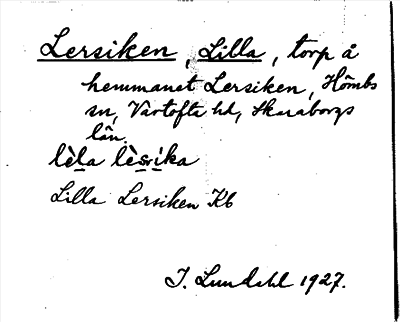 Lersiken, Lilla, torp å
hemmanet Lersiken, Hömbs
sn, Vartofta hd, Skaraborgs
län.
lèla lèsrika
Lilla Lersiken Kb
I. Lundahl 1927.